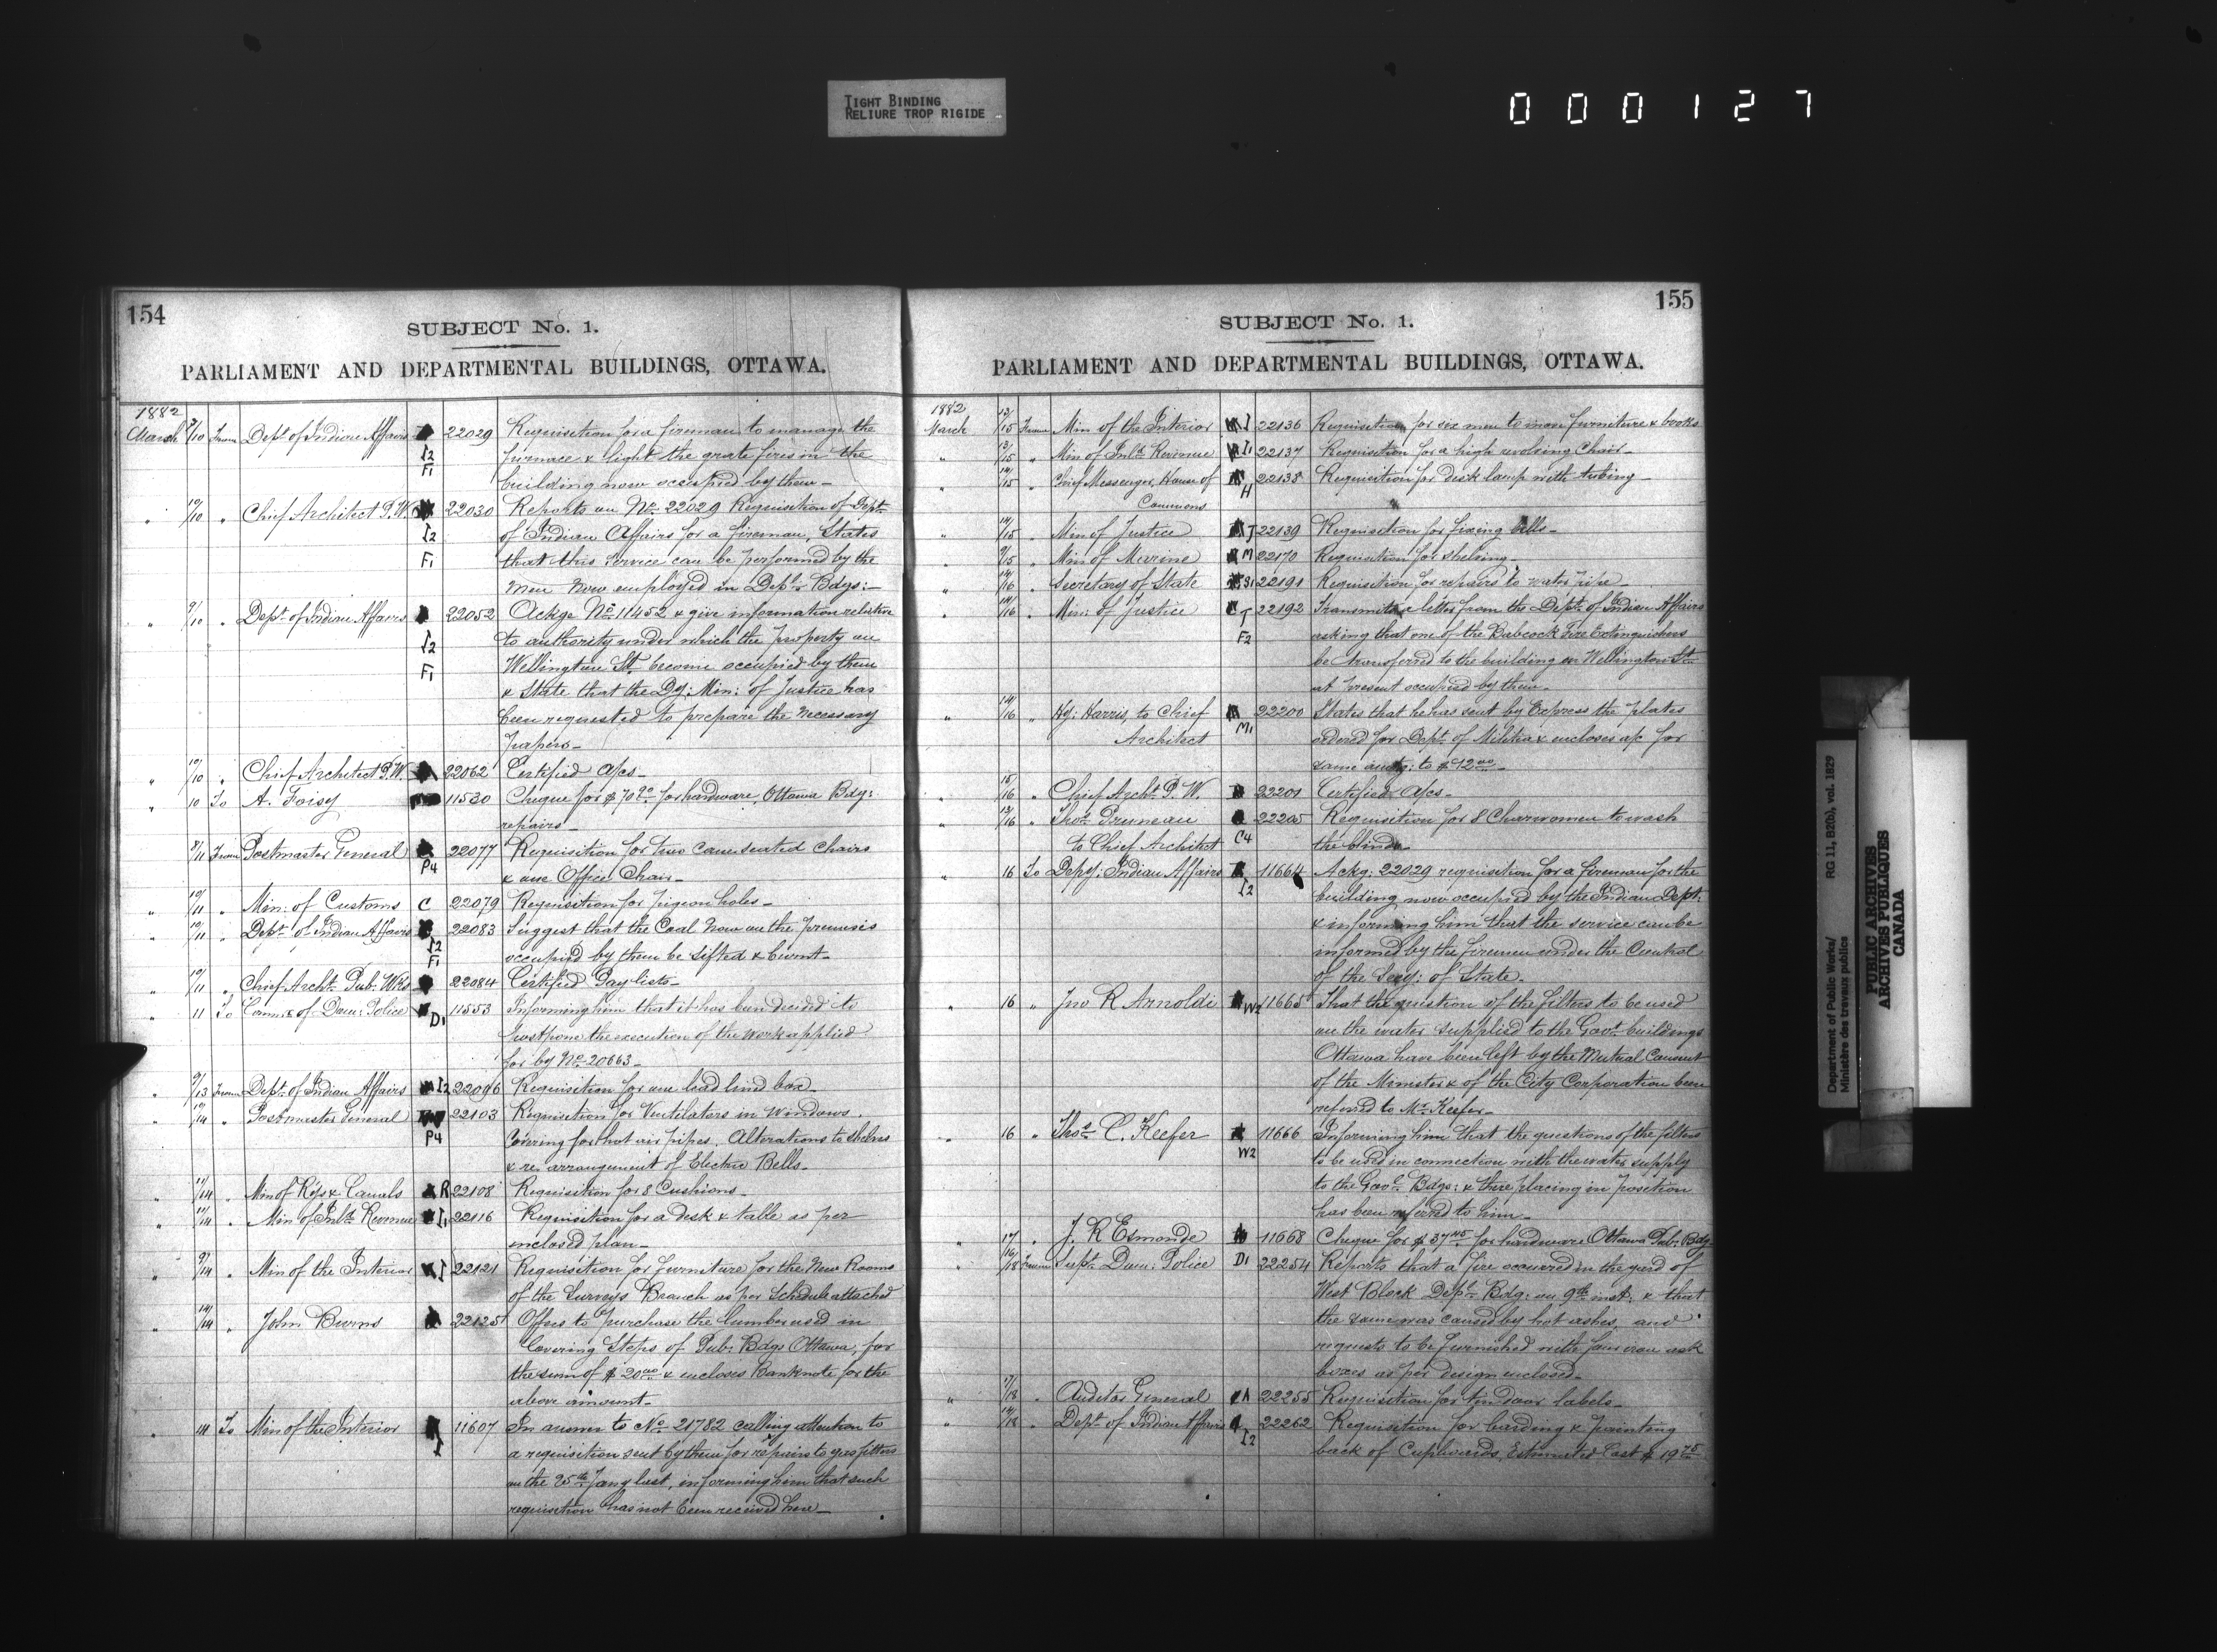 TIGHT BINDING
RELIURE TROP RIGIDE
000127
154
SUBJECT No. 1.
PARLIAMENT AND DEPARTMENTAL BUILDINGS, OTTAWA.
1882
March 9/10 From Dept of Indian Affairs 22029 Requisition for a fireman to manage the
I2 furnace & light the grate fires in the
F1 building now occupied by them_
" 10/10 " Chief Architect P.W. 22030 Reports on No 22029 Requisition of Dept
I2 of Indian Affairs for a fireman, States
F1 that this service can be performed by the
men now employed in Deptl Bdgs:_
" 9/10 " Dept of Indian Affairs 22052 Ackge No 11452 & give information relative
I2 to authority under which the property on
F1 Wellington St. become occupied by them
& state that the Dy: Min: of Justice has
been requested to prepare the necessary
papers_
" 10/10 " Chief Architect P.W. 22062 Certified a/cs_
" 10 To A. Foisy 11530 Cheque for $70 90 for hardware, Ottawa Bdg:
repairs_
9/11 From Postmaster General 22077 Requisition for two cane seated Chairs
P4 & one Office Chair_
" 10/11 " Min: of Customs C 22079 Requisition for pigeon holes_
" 10/11 " Dept of Indian Affairs 22083 Suggest that the Coal now on the premises
I2 F1 occupied by them be sifted & burnt_
" 10/11 " Chief Archt Pub: Wks 22084 Certified Pay lists_
" 11 To Commr of Dom: Police D1 11553 Informing him that it has been decided to
postpone the execution of the work applied
for by No 20663_
" 9/13 From Dept of Indian Affairs I2 22096 Requisition for one lead lined box_
" 10/14 " Postmaster General 22103 Requisition for Ventilators in Windows.
P4 Covering for hot air pipes. Alterations to shelves
& re arrangement of Electric Bells_
" 11/14 " Min of Rys & Canals R 22108 Requisition for 8 Cushions_
" 11/14 " Min of Inld Revenue I1 22116 Requisition for a desk & table as per
enclosed plan_
" 9/14 " Min of the Interior I 22121 Requisition for furniture for the New Rooms
of the Surveys Branch as per Schedule attached
" 14/14 " John Burns 22125 Offers to purchase the lumber used in
Covering Steps of Pub: Bdgs Ottawa, for
the sum of $ 20 00 & encloses Banknote for the
above amount_
" 14 To Min of the Interior 11607 In answer to No 21782 calling attention to
I a requisition sent by them for repairs to gas fitters
on the 25th Jany last, informing him that such
requisition has not been received here_
155
SUBJECT No. 1.
PARLIAMENT AND DEPARTMENTAL BUILDINGS, OTTAWA.
1882
March 13/15 From Min of the Interior I 22136 Requisition for six men to move furniture & books
" 13/15 " Min of Inld Revenue I1 22137 Requisition for a high revolving Chair_
" 14/15 " Chief Messenger, House of H 22138 Requisition for desk lamp with tubing_
Commons
" 14/15 " Min of Justice J 22139 Requisition for fixing bells_
" 9/15 " Min of Marine M 22170 Requisition for shelving_
" 14/16 " Secretary of State S1 22191 Requisition for repairs to water pipe_
" 14/16 " Min: of Justice J 22192 Transmits a letter from the Dept of Indian Affairs
F2 asking that one of the Babcock Fire Extinguishers
be transferred to the building on Wellington St
at present occupied by them_
" 14/16 " Hy: Harris, to Chief 22200 States that he has sent by Express the plates
Architect M1 ordered for Dept of Militia & encloses a/c for
same amtg: to $ 12 00_
" 15/16 " Chief Archt P.W. 22201 Certified a/cs_
" 13/16 " Thos Pruneau 22205 Requisition for 8 Charwomen to wash
to Chief Architect C4 the blinds_
" 16 To Depy: Indian Affairs 11664 Ackg: 22029 requisition for a fireman for the
I2 building now occupied by the Indian Dept:
& informing him that the service can be
informed by the firemen under the Control
of the Secy: of State_
" 16 " Jno R Arnoldi W2 11665 That the question of the filters to be used
on the water supplied to the Govt buildings
Ottawa have been left by the Mutual Consent
of the Minister & of the City Corporation been
referred to Mr Keefer_
" 16 " Thos C. Keefer 11666 Informing him that the questions of the filters
W2 to be used in connection with the water supply
to the Govt Bdgs: & there placing in position
has been referred to him_
" 17 " J. R Esmonde 11668 Cheque for $ 37 45 for hardware Ottawa Pub: Bdg
" 16/18 From Supt Dom: Police D1 22254 Reports that a fire occurred in the yard of
West Block Deptl Bdg: on 9th inst: & that
the same was caused by hot ashes, and
requests to be furnished with four iron ash
boxes as per design enclosed_
" 17/18 " Auditor General A 22255 Requisition for ten door labels_
" 14/18 " Dept of Indian Affairs 22262 Requisition for boarding & painting
I2 back of Cupboards, Estimated Cost $ 19 75
Department of Public Works/ RG 11, B2(b), vol. 1829
Ministère des travaux publics
PUBLIC ARCHIVES
ARCHIVES PUBLIQUES
CANADA